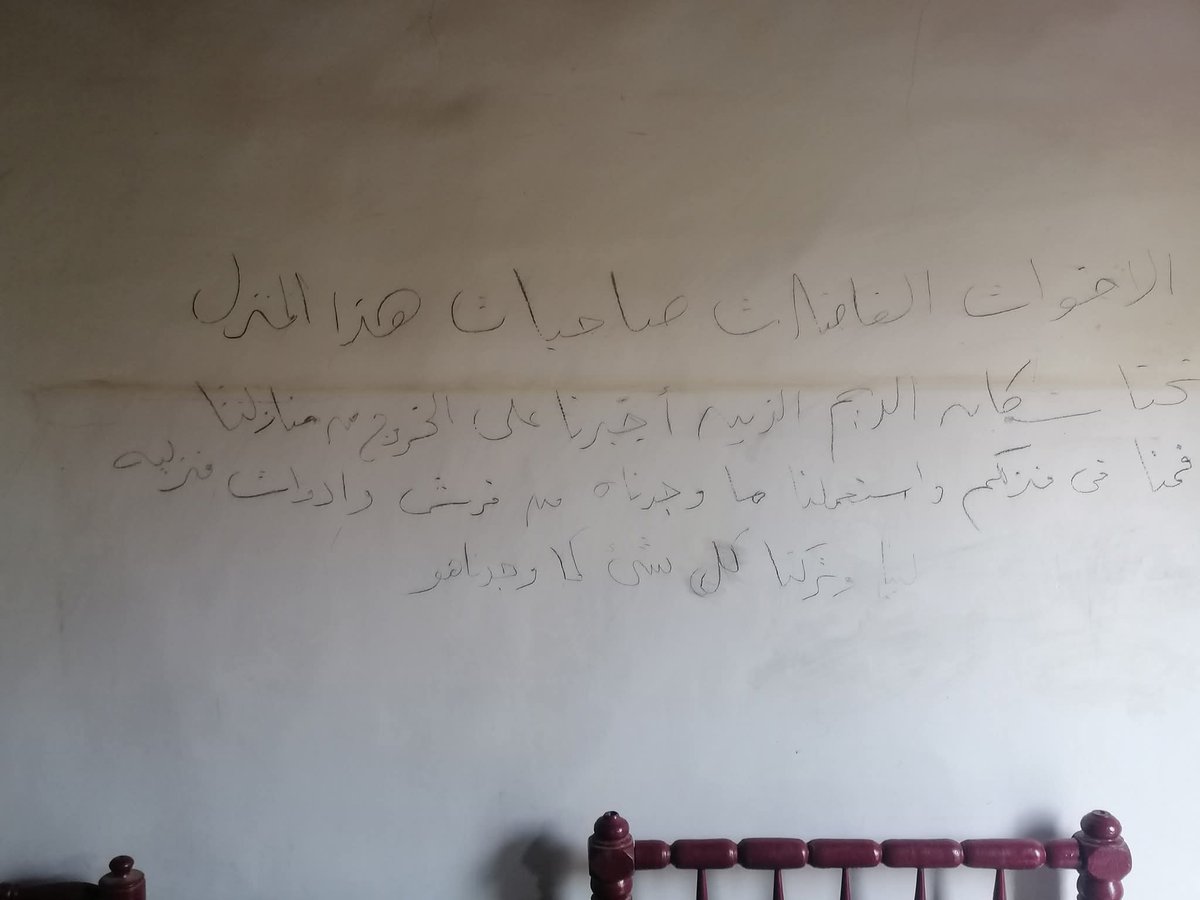 الاخوات الفاضلات صاحبات هذا المنزل
نحنا سكان الديم الزين أجبرنا على الخروج من منازلنا
قمنا فى منزلكم واستعملنا ما وجدناه من فرش وادوات منزليه
وتركنا كل شئ كما وجدناهو